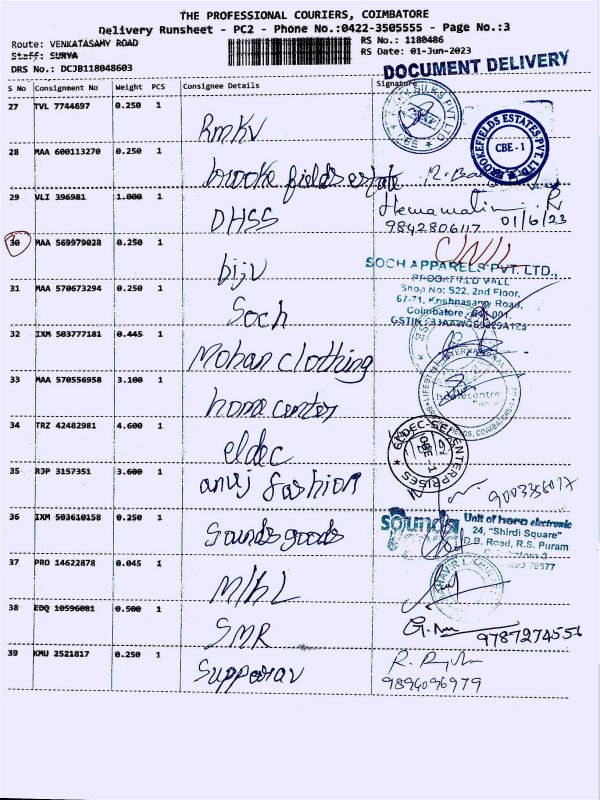 THE PROFESSIONAL COURIERS, COIMBATORE
Delivery Runsheet - PC2 - Phone No.:0422-3505555 - Page No.:3
Route: VENKATASAMY ROAD RS No.: 1180486
Staff: SURYA RS Date: 01-Jun-2023
DRS No.: DCJB118048603 DOCUMENT DELIVERY
S No Consignment No Weight PCS Consignee Details Signature
27 TVL 7744697 0.250 1
RMKV SILKS PVT LTD CBE
28 MAA 600113270 0.250 1
brooke fields estate BROOKEFIELDS ESTATES PVT. LTD. CBE - 1
29 VLI 396981 1.000 1
DHSS 9842806117 01/6/23
30 MAA 569979028 0.250 1
bijv
SOCH APPARELS PVT. LTD.,
BROOKFIELD MALL
31 MAA 570673294 0.250 1 Shop No: S22, 2nd Floor,
67-71, Krishnasamy Road,
Soch Coimbatore - 641 001.
GSTIN
32 IXM 503777181 0.445 1
Mohan clothing
33 MAA 570556958 3.100 1
home center
34 TRZ 42482981 4.600 1
eldec ELDEC-SEL ENTERPRISES
35 RJP 3157351 3.600 1
anuj fashion
36 IXM 503610158 0.250 1
Sounds goods sounds Unit of hano electronic
24, "Shirdi Square"
D.B. Road, R.S. Puram
37 PRO 14622878 0.045 1
M/hL
38 EDQ 10596081 0.500 1
SMR 9787274556
39 KMU 2521817 0.250 1
Supparav 9894096979